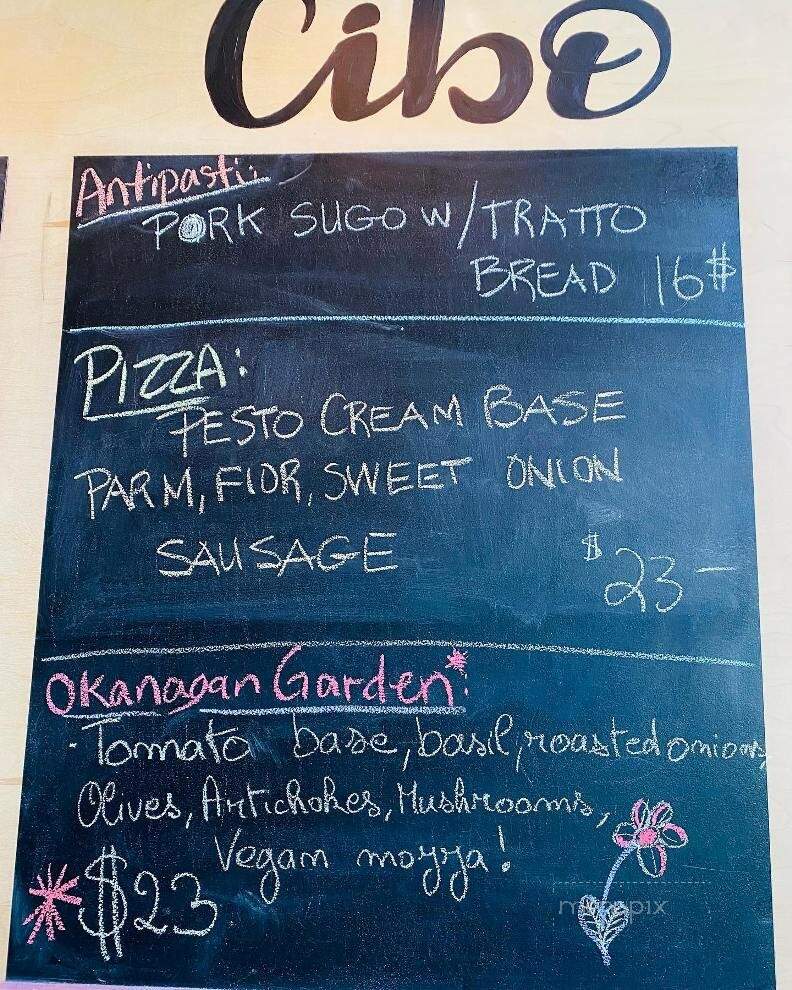 Cibo
Antipasti:
PORK SUGO W/TRATTO
BREAD 16$
PIZZA:
PESTO CREAM BASE
PARM, FIOR, SWEET ONION
SAUSAGE
$23-
Okanagan Garden*:
- Tomato base, basil, roasted onions,
Olives, Artichokes, Mushrooms,
Vegan mozza!
$23